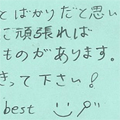 とばかりだと思い
こ頑張れば
ものがあります。
きって下さい！
best